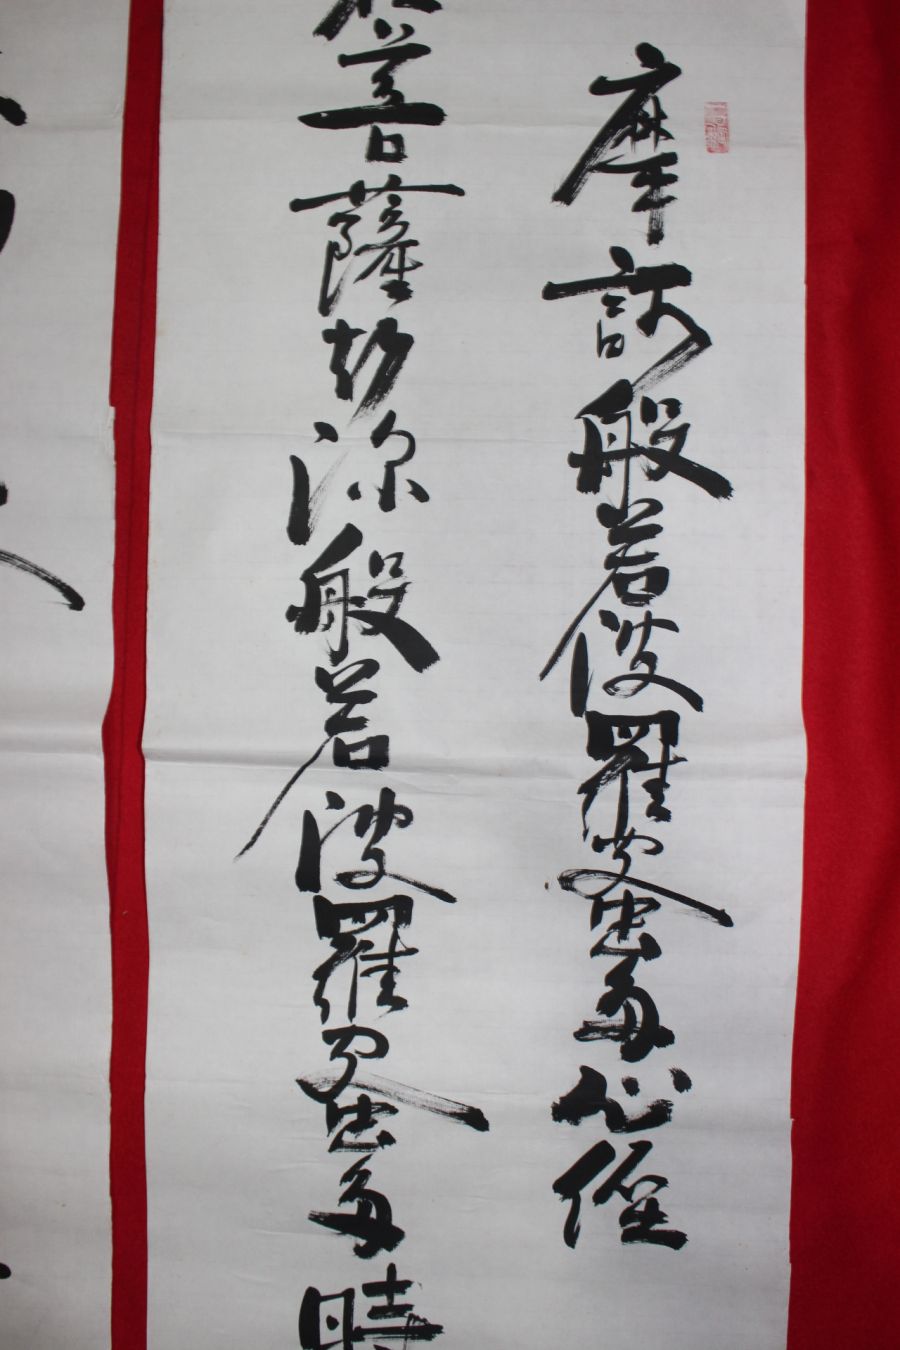 摩訶般若波羅蜜多心經
菩薩行深般若波羅蜜多時